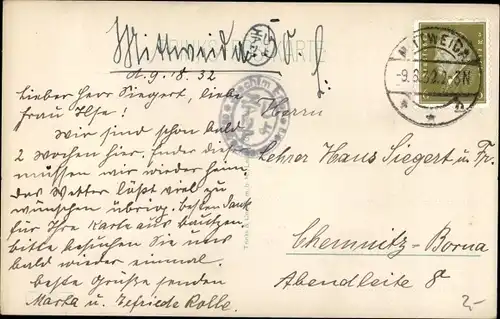 Mittweida
d. 9.8.32
Lieber Herr Siegert, liebe
Frau Ilse!
Wir sind schon bald
2 Wochen hier. Ende dieser
müssen wir wieder heim
das Wetter läßt viel zu
wünschen übrig. besten Dank
für Ihre Karte aus bautzen.
bitte besuchen Sie uns
bald wieder einmal.
beste Grüße senden
Marta u. Elfriede Kolbe.
MITTWEIDA
-9.8.32.
Herrn
Lehrer Hans Siegert u. Fr.
Chemnitz-Borna
Abendleite 8
2-